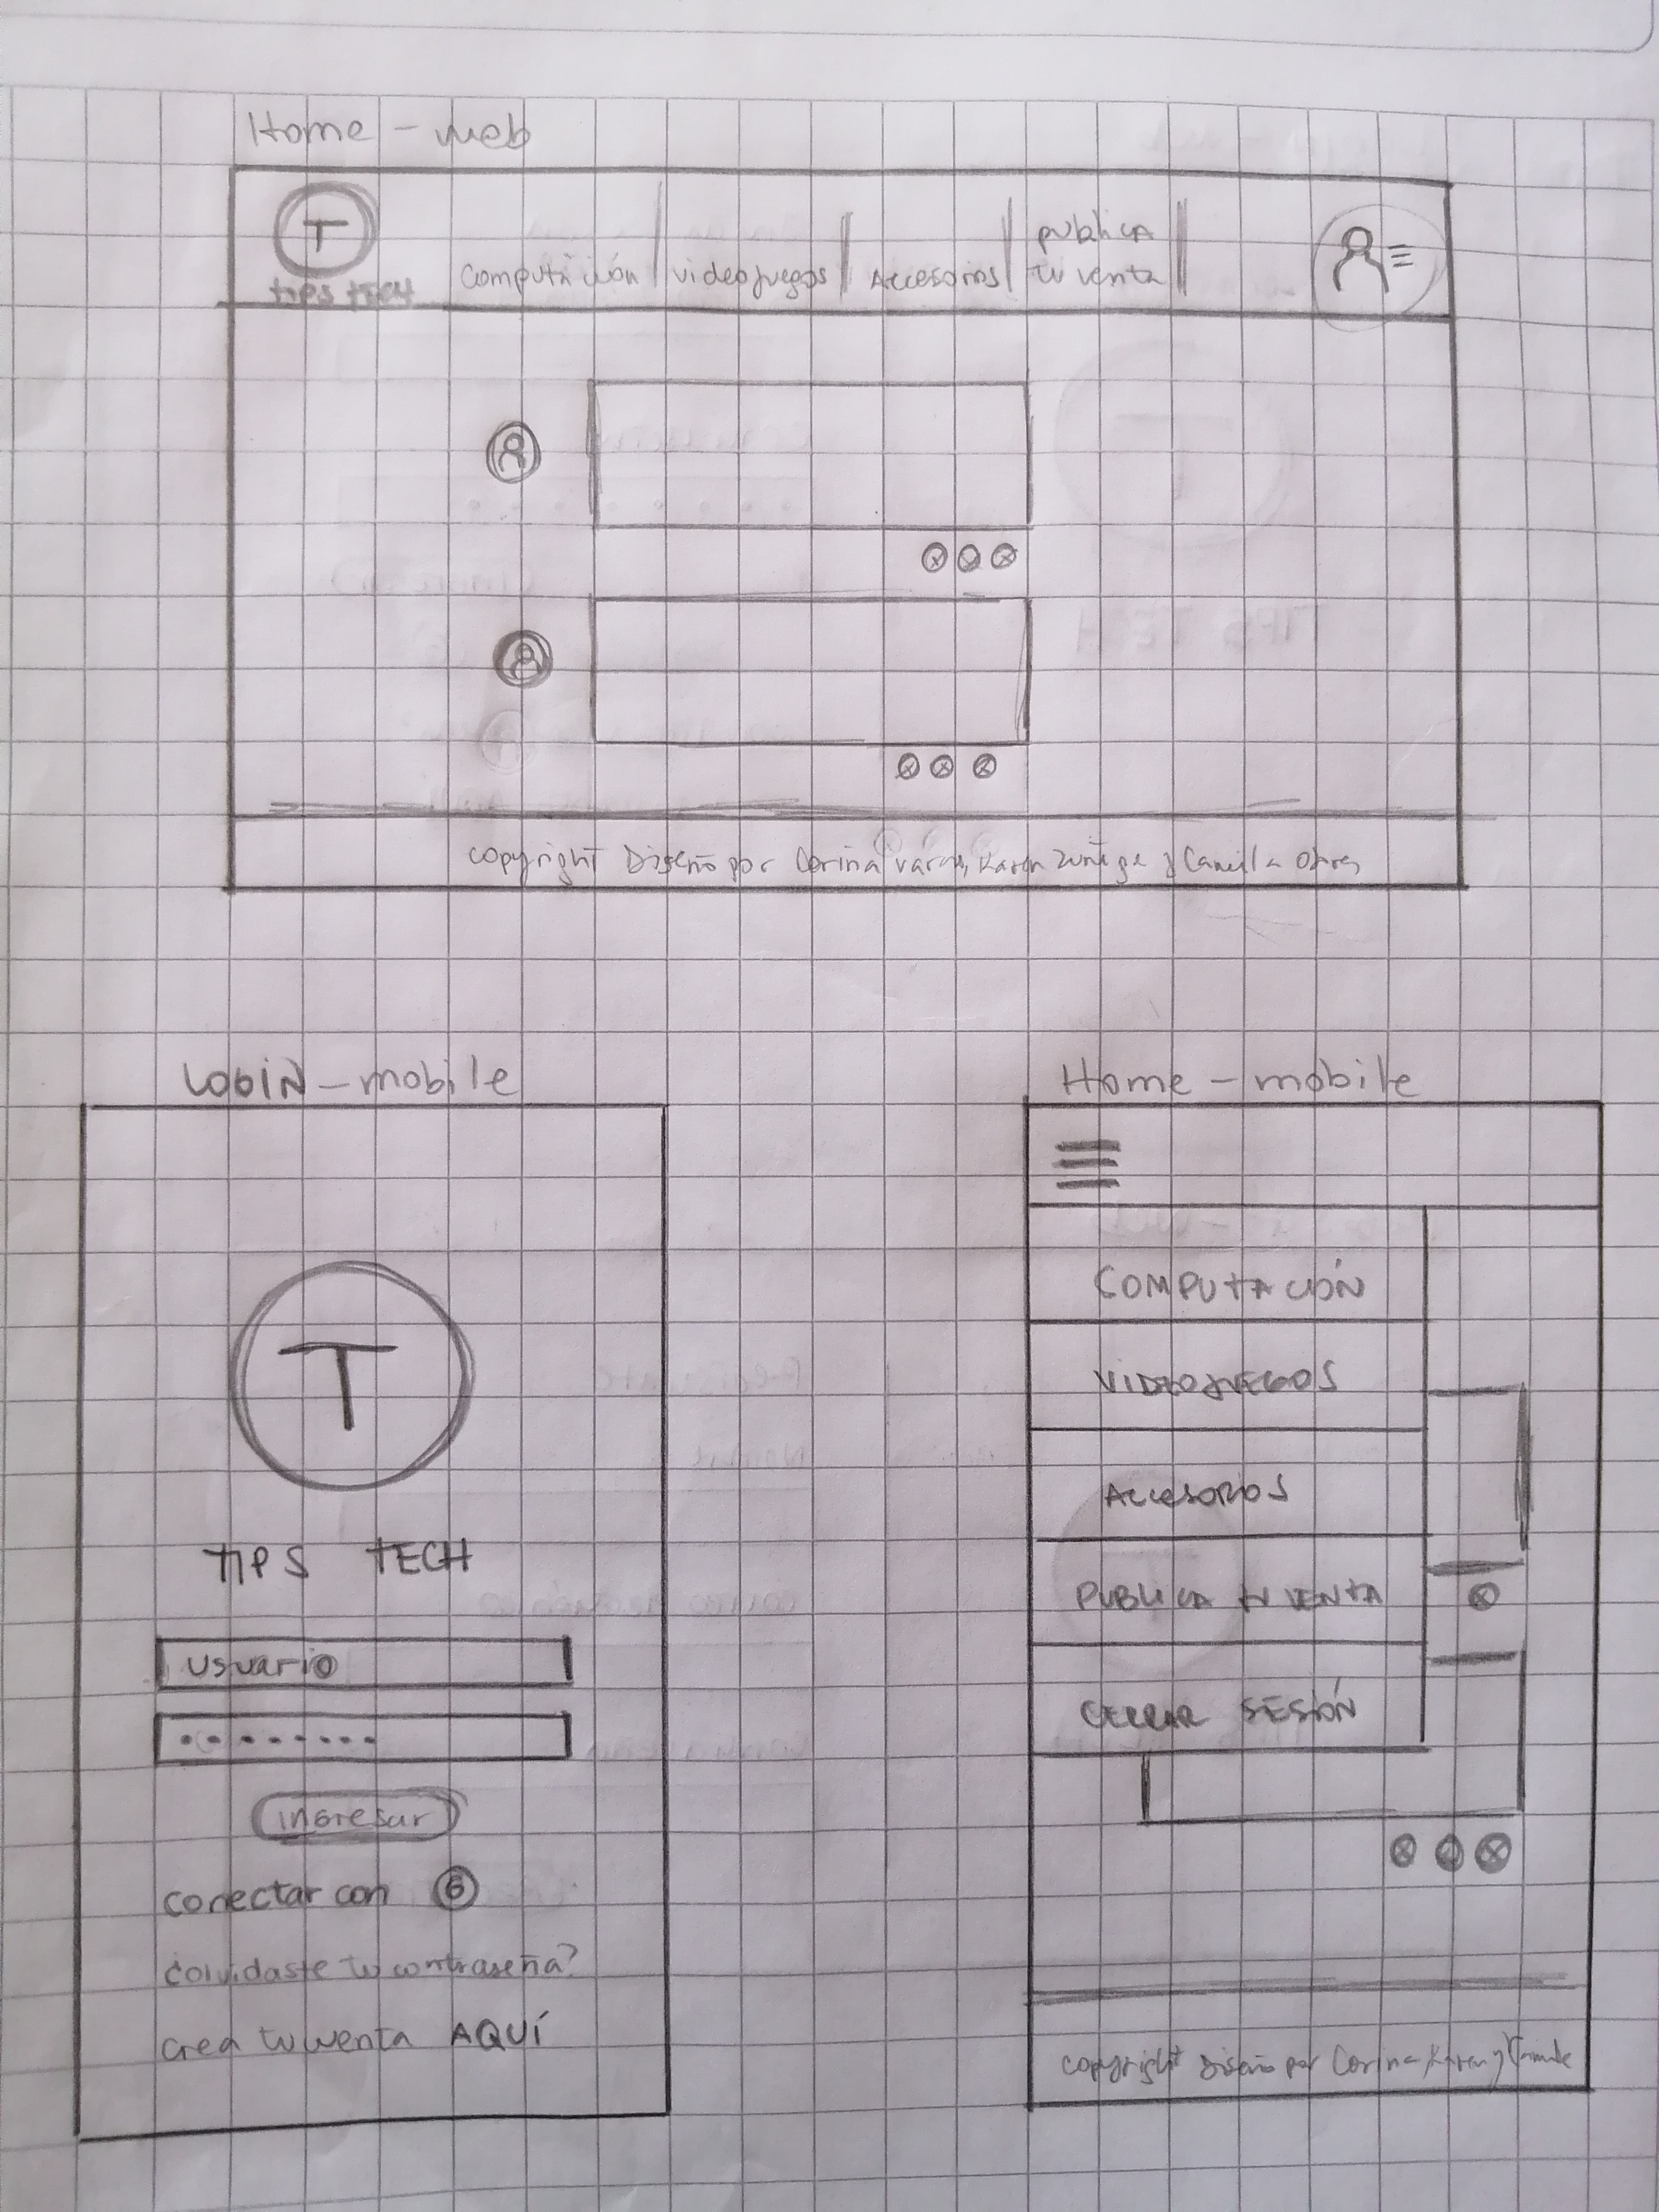 Home - web
T
TIPS TECH
Computación
videojuegos
Accesorios
publica
tu venta
Copyright Diseño por Corina Vargas, Karen Zuñiga y Camila
LOGIN - mobile
T
TIPS TECH
usuario
ingresar
conectar con G
¿olvidaste tu contraseña?
crea tu venta AQUÍ
Home - mobile
COMPUTACIÓN
VIDEOJUEGOS
ACCESORIOS
PUBLICA TU VENTA
CERRAR SESIÓN
copyright Diseño por Corina, Karen y Camila